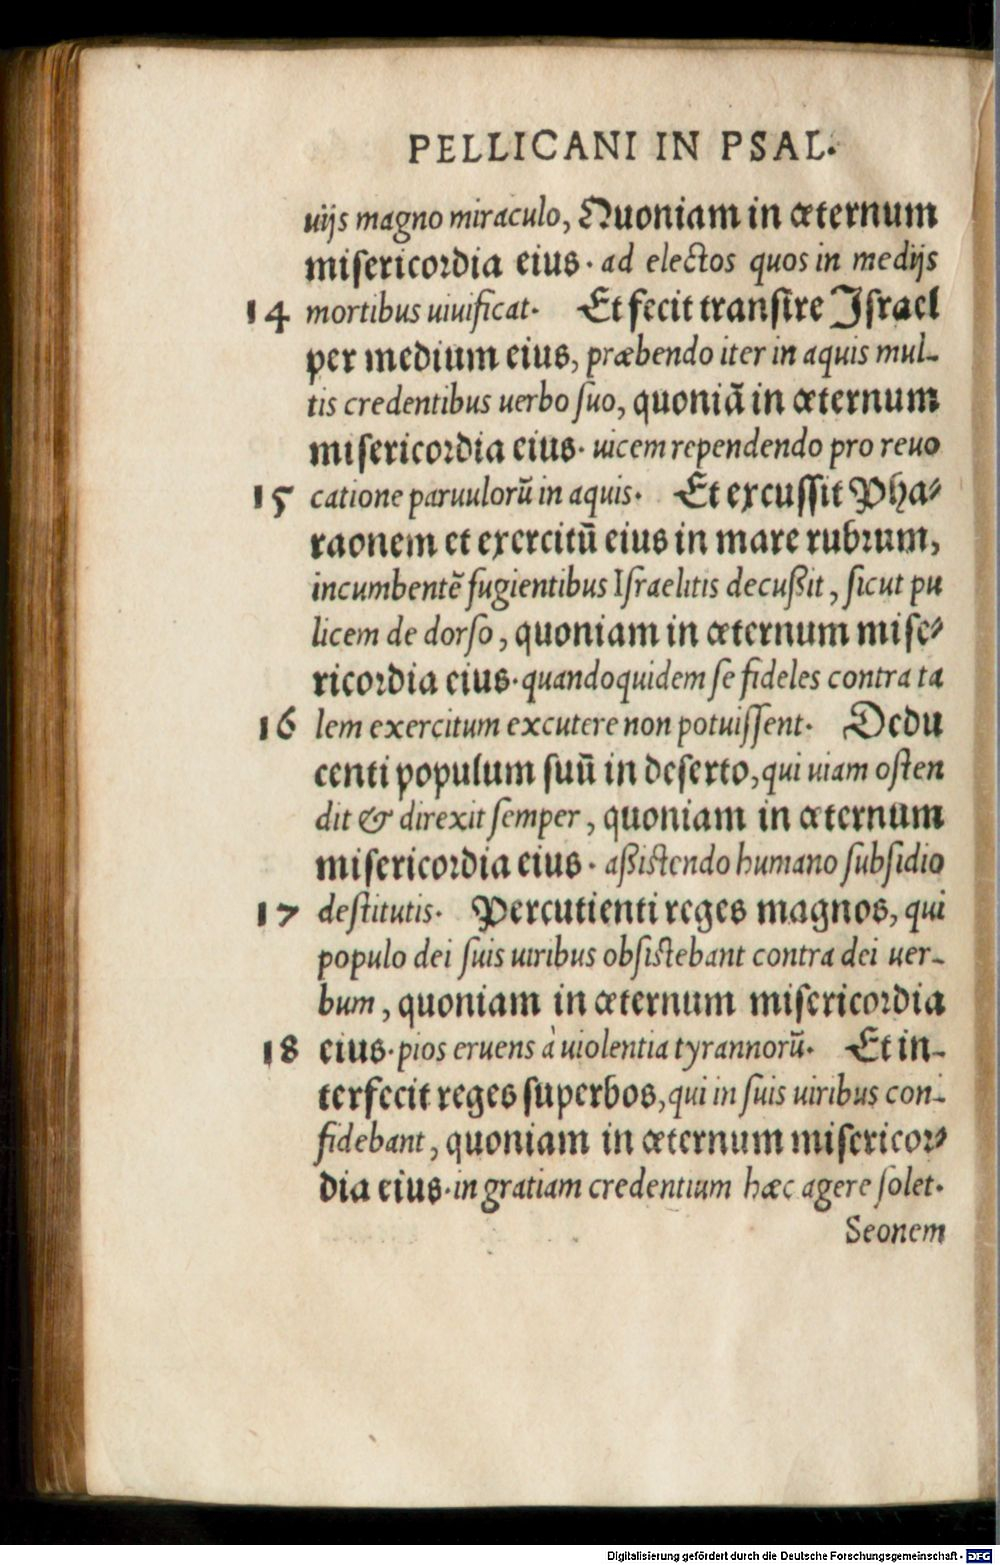 PELLICANI IN PSAL.
uijs magno miraculo, Quoniam in æternum
misericordia eius. ad electos quos in medijs
14 mortibus uiuificat. Et fecit transire Israel
per medium eius, præbendo iter in aquis mul-
tis credentibus uerbo suo, quoniā in æternum
misericordia eius. uicem rependendo pro reuo
15 catione paruulorū in aquis. Et excussit Pha-
raonem et exercitū eius in mare rubrum,
incumbentē fugientibus Israelitis decußit, sicut pu
licem de dorso, quoniam in æternum mise-
ricordia eius. quandoquidem se fideles contra ta
16 lem exercitum excutere non potuissent. Dedu
centi populum suū in deserto, qui uiam osten
dit & direxit semper, quoniam in æternum
misericordia eius. aßistendo humano subsidio
17 destitutis. Percutienti reges magnos, qui
populo dei suis uiribus obsistebant contra dei uer-
bum, quoniam in æternum misericordia
18 eius. pios eruens à uiolentia tyrannorū. Et in-
terfecit reges superbos, qui in suis uiribus con-
fidebant, quoniam in æternum misericor-
dia eius. in gratiam credentium hæc agere solet.
Seonem
Digitalisierung gefördert durch die Deutsche Forschungsgemeinschaft - DFG